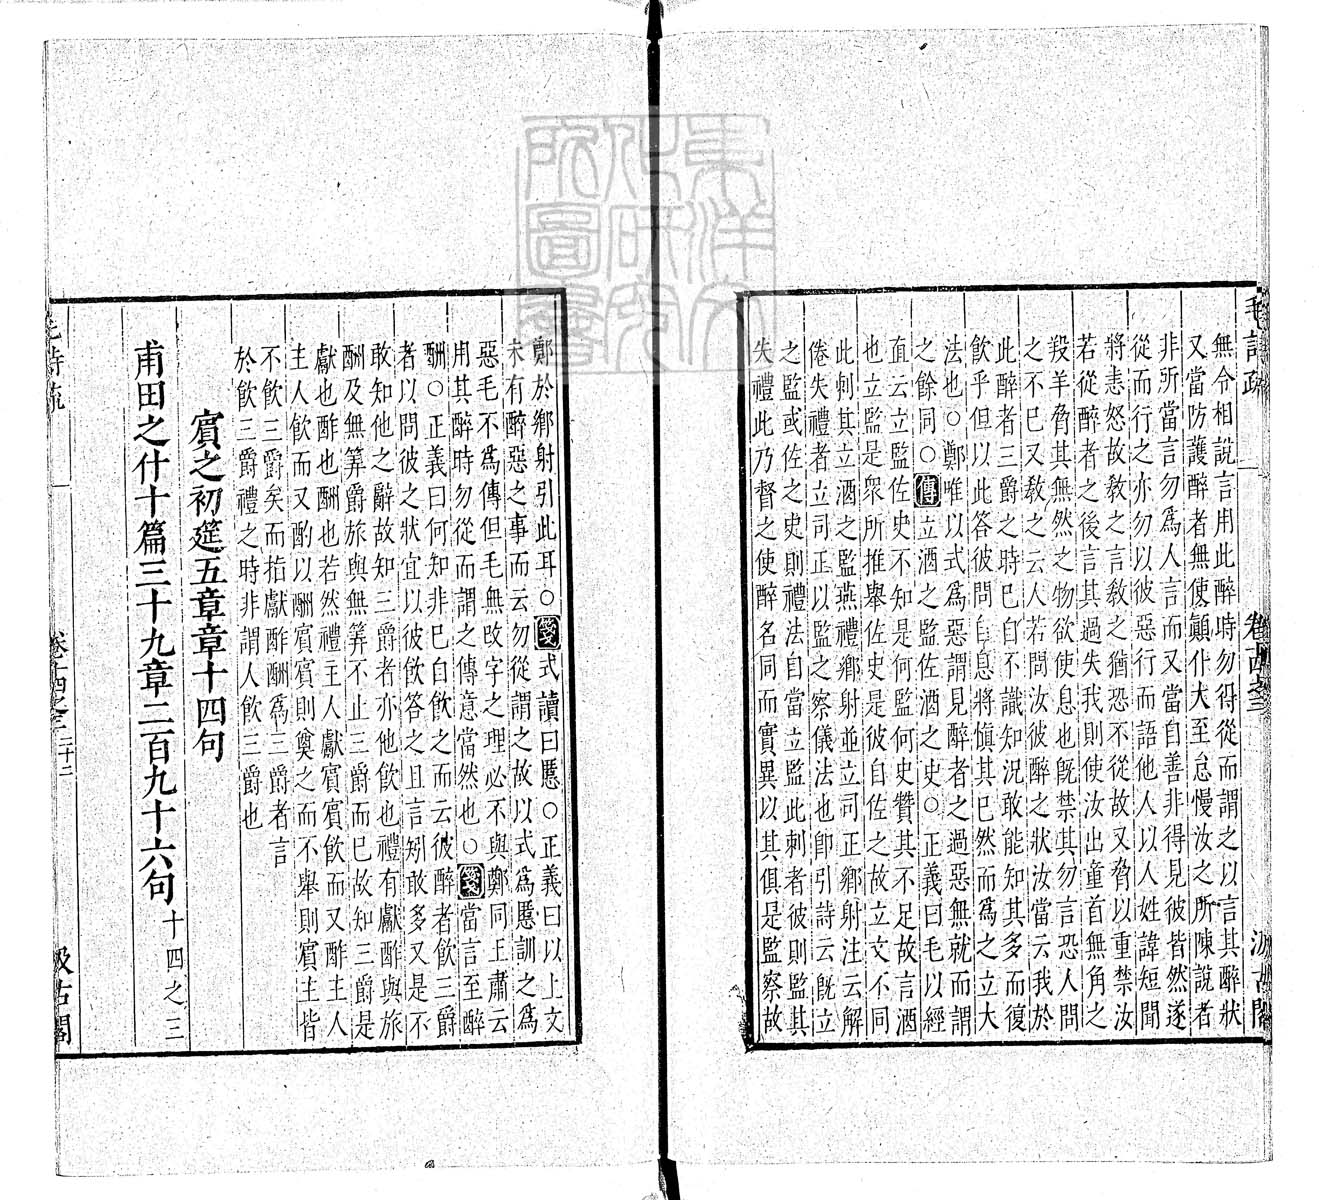 毛詩疏
卷十四之三
汲古閣
無令相說言用此醉時勿得從而謂之以言其醉狀
又當防護醉者無使顛仆大至怠慢汝之所陳說者
非所當言勿爲人言而又當自善非得見彼皆然遂
從而行之亦勿以彼惡行而語他人以人姓諱短聞
將恚怒故教之言教之猶恐不從故又脅以重禁汝
若從醉者之後言其過失我則使汝出童首無角之
羖羊脅其無然之物欲使息也既禁其勿言恐人問
之不已又教之云人若問汝彼醉之狀汝當云我於
此醉者三爵之時已自不識知況敢能知其多而復
飲乎但以此答彼問自息將愼其已然而爲之立大
法也○鄭唯以式爲惡謂見醉者之過惡無就而謂
之餘同○傳立酒之監佐酒之史○正義曰毛以經
直云立監佐史不知是何監何史贊其不足故言酒
也立監是衆所推舉佐史是彼自佐之故立文不同
此刺其立酒之監燕禮鄉射並立司正鄉射注云解
倦失禮者立司正以監之察儀法也卽引詩云既立
之監或佐之史則禮法自當立監此刺者彼則監其
失禮此乃督之使醉名同而實異以其俱是監察故
鄭於鄉射引此耳○箋式讀曰慝○正義曰以上文
未有醉惡之事而云勿從謂之故以式爲慝訓之爲
惡毛不爲傳但毛無改字之理必不與鄭同王肅云
用其醉時勿從而謂之傳意當然也○箋當言至醉
酬○正義曰何知非已自飲之而云彼醉者飲三爵
者以問彼之狀宜以彼飲答之且言矧敢多又是不
敢知他之辭故知三爵者亦他飲也禮有獻酢與旅
酬及無筭爵旅與無筭不止三爵而已故知三爵是
獻也酢也酬也若然禮主人獻賓賓飲而又酢主人
主人飲而又酌以酬賓賓則奠之而不舉則賓主皆
不飲三爵矣而指獻酢酬爲三爵者言
於飲三爵禮之時非謂人飲三爵也
賓之初筵五章章十四句
甫田之什十篇三十九章二百九十六句 十四之三
毛詩疏
卷十四之三
二十二
汲古閣
東洋文化研究所圖書